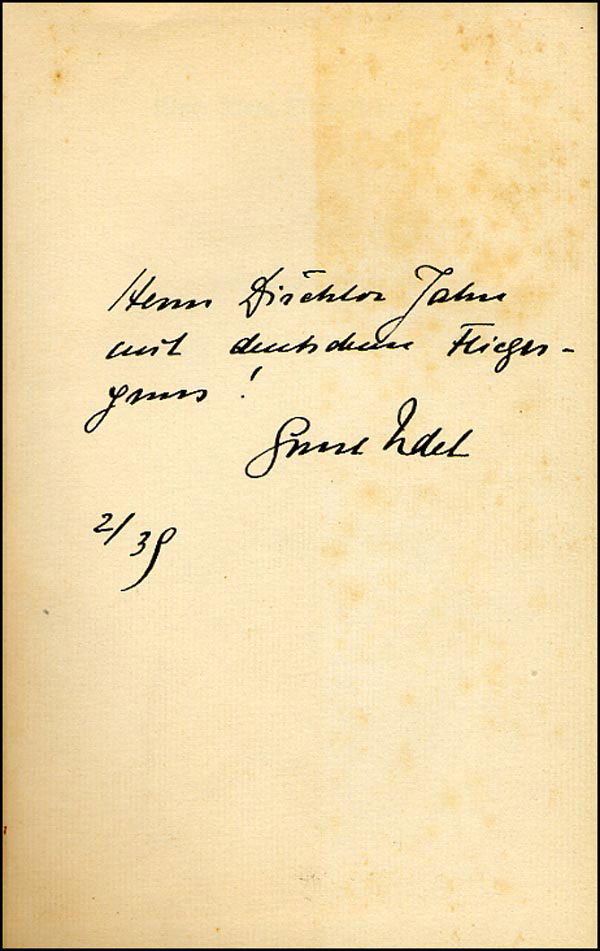 Herrn Direktor Jahn
mit deutschem Flieger-
gruss!
Ernst Udet
2/39